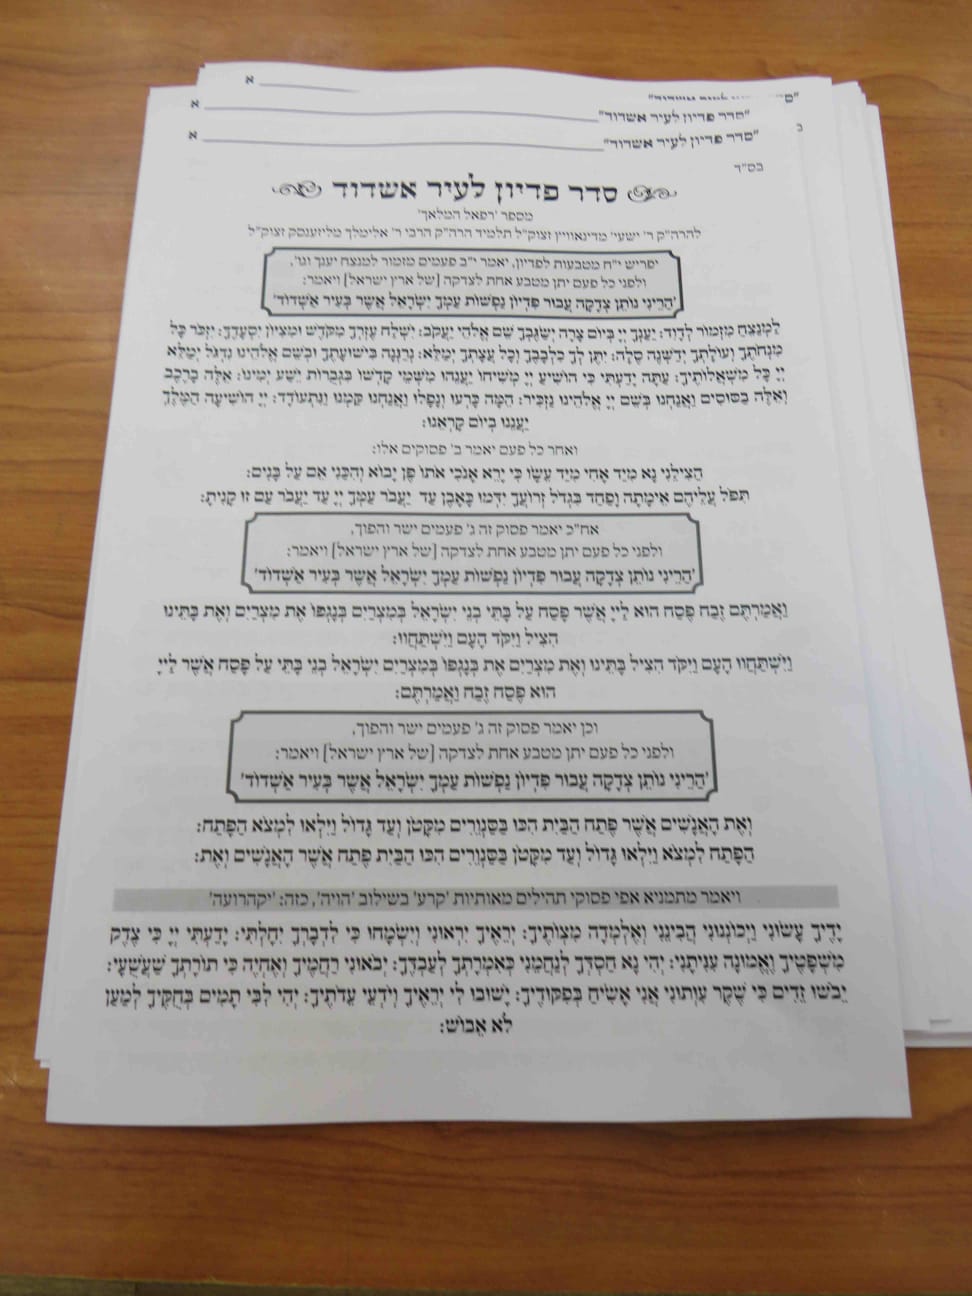 א
"סדר פדיון לעיר אשדוד"
א
"סדר פדיון לעיר אשדוד"
א
"סדר פדיון לעיר אשדוד"
בס"ד
סדר פדיון לעיר אשדוד
מספר 'רפאל המלאך'
להרה"ק ר' ישעי' מדינאוויץ זצוק"ל תלמיד הרה"ק הרבי ר' אלימלך מליזענסק זצוק"ל
יפריש י"ח מטבעות לפדיון, יאמר י"ב פעמים מזמור למנצח יענך וגו',
ולפני כל פעם יתן מטבע אחת לצדקה [של ארץ ישראל] ויאמר:
'הֲרֵינִי נוֹתֵן צְדָקָה עֲבוּר פִּדְיוֹן נַפְשׁוֹת עַמְּךָ יִשְׂרָאֵל אֲשֶׁר בְּעִיר אַשְׁדוֹד'
לַמְנַצֵּחַ מִזְמוֹר לְדָוִד: יַעַנְךָ יְיָ בְּיוֹם צָרָה יְשַׂגֶּבְךָ שֵׁם אֱלֹהֵי יַעֲקֹב: יִשְׁלַח עֶזְרְךָ מִקֹּדֶשׁ וּמִצִּיּוֹן יִסְעָדֶךָּ: יִזְכֹּר כָּל
מִנְחֹתֶךָ וְעוֹלָתְךָ יְדַשְּׁנֶה סֶלָה: יִתֶּן לְךָ כִלְבָבֶךָ וְכָל עֲצָתְךָ יְמַלֵּא: נְרַנְּנָה בִּישׁוּעָתֶךָ וּבְשֵׁם אֱלֹהֵינוּ נִדְגֹּל יְמַלֵּא
יְיָ כָּל מִשְׁאֲלוֹתֶיךָ: עַתָּה יָדַעְתִּי כִּי הוֹשִׁיעַ יְיָ מְשִׁיחוֹ יַעֲנֵהוּ מִשְּׁמֵי קָדְשׁוֹ בִּגְבֻרוֹת יֵשַׁע יְמִינוֹ: אֵלֶּה בָרֶכֶב
וְאֵלֶּה בַסּוּסִים וַאֲנַחְנוּ בְּשֵׁם יְיָ אֱלֹהֵינוּ נַזְכִּיר: הֵמָּה כָּרְעוּ וְנָפָלוּ וַאֲנַחְנוּ קַּמְנוּ וַנִּתְעוֹדָד: יְיָ הוֹשִׁיעָה הַמֶּלֶךְ
יַעֲנֵנוּ בְיוֹם קָרְאֵנוּ:
ואחר כל פעם יאמר ב' פסוקים אלו:
הַצִּילֵנִי נָא מִיַּד אָחִי מִיַּד עֵשָׂו כִּי יָרֵא אָנֹכִי אֹתוֹ פֶּן יָבוֹא וְהִכַּנִי אֵם עַל בָּנִים:
תִּפֹּל עֲלֵיהֶם אֵימָתָה וָפַחַד בִּגְדֹל זְרוֹעֲךָ יִדְּמוּ כָּאָבֶן עַד יַעֲבֹר עַמְּךָ יְיָ עַד יַעֲבֹר עַם זוּ קָנִיתָ:
אח"כ יאמר פסוק זה ג' פעמים ישר והפוך,
ולפני כל פעם יתן מטבע אחת לצדקה [של ארץ ישראל] ויאמר:
'הֲרֵינִי נוֹתֵן צְדָקָה עֲבוּר פִּדְיוֹן נַפְשׁוֹת עַמְּךָ יִשְׂרָאֵל אֲשֶׁר בְּעִיר אַשְׁדוֹד'
וַאֲמַרְתֶּם זֶבַח פֶּסַח הוּא לַיְיָ אֲשֶׁר פָּסַח עַל בָּתֵּי בְנֵי יִשְׂרָאֵל בְּמִצְרַיִם בְּנָגְפּוֹ אֶת מִצְרַיִם וְאֶת בָּתֵּינוּ
הִצִּיל וַיִּקֹּד הָעָם וַיִּשְׁתַּחֲווּ:
וַיִּשְׁתַּחֲווּ הָעָם וַיִּקֹּד הִצִּיל בָּתֵּינוּ וְאֶת מִצְרַיִם אֶת בְּנָגְפּוֹ בְּמִצְרַיִם יִשְׂרָאֵל בְנֵי בָּתֵּי עַל פָּסַח אֲשֶׁר לַיְיָ
הוּא פֶּסַח זֶבַח וַאֲמַרְתֶּם:
וכן יאמר פסוק זה ג' פעמים ישר והפוך,
ולפני כל פעם יתן מטבע אחת לצדקה [של ארץ ישראל] ויאמר:
'הֲרֵינִי נוֹתֵן צְדָקָה עֲבוּר פִּדְיוֹן נַפְשׁוֹת עַמְּךָ יִשְׂרָאֵל אֲשֶׁר בְּעִיר אַשְׁדוֹד'
וְאֶת הָאֲנָשִׁים אֲשֶׁר פֶּתַח הַבַּיִת הִכּוּ בַּסַּנְוֵרִים מִקָּטֹן וְעַד גָּדוֹל וַיִּלְאוּ לִמְצֹא הַפָּתַח:
הַפָּתַח לִמְצֹא וַיִּלְאוּ גָּדוֹל וְעַד מִקָּטֹן בַּסַּנְוֵרִים הִכּוּ הַבַּיִת פֶּתַח אֲשֶׁר הָאֲנָשִׁים וְאֶת:
ויאמר מתמניא אפי פסוקי תהילים מאותיות 'קרע' בשילוב 'הויה', כזה: 'יקהרועה'
יָדֶיךָ עָשׂוּנִי וַיְכוֹנְנוּנִי הֲבִינֵנִי וְאֶלְמְדָה מִצְוֹתֶיךָ: יְרֵאֶיךָ יִרְאוּנִי וְיִשְׂמָחוּ כִּי לִדְבָרְךָ יִחָלְתִּי: יָדַעְתִּי יְיָ כִּי צֶדֶק
מִשְׁפָּטֶיךָ וֶאֱמוּנָה עִנִּיתָנִי: יְהִי נָא חַסְדְּךָ לְנַחֲמֵנִי כְּאִמְרָתְךָ לְעַבְדֶּךָ: יְבֹאוּנִי רַחֲמֶיךָ וְאֶחְיֶה כִּי תוֹרָתְךָ שַׁעֲשֻׁעָי:
יֵבֹשׁוּ זֵדִים כִּי שֶׁקֶר עִוְּתוּנִי אֲנִי אָשִׂיחַ בְּפִקּוּדֶיךָ: יָשׁוּבוּ לִי יְרֵאֶיךָ וְיֹדְעֵי עֵדֹתֶיךָ: יְהִי לִבִּי תָמִים בְּחֻקֶּיךָ לְמַעַן
לֹא אֵבוֹשׁ: